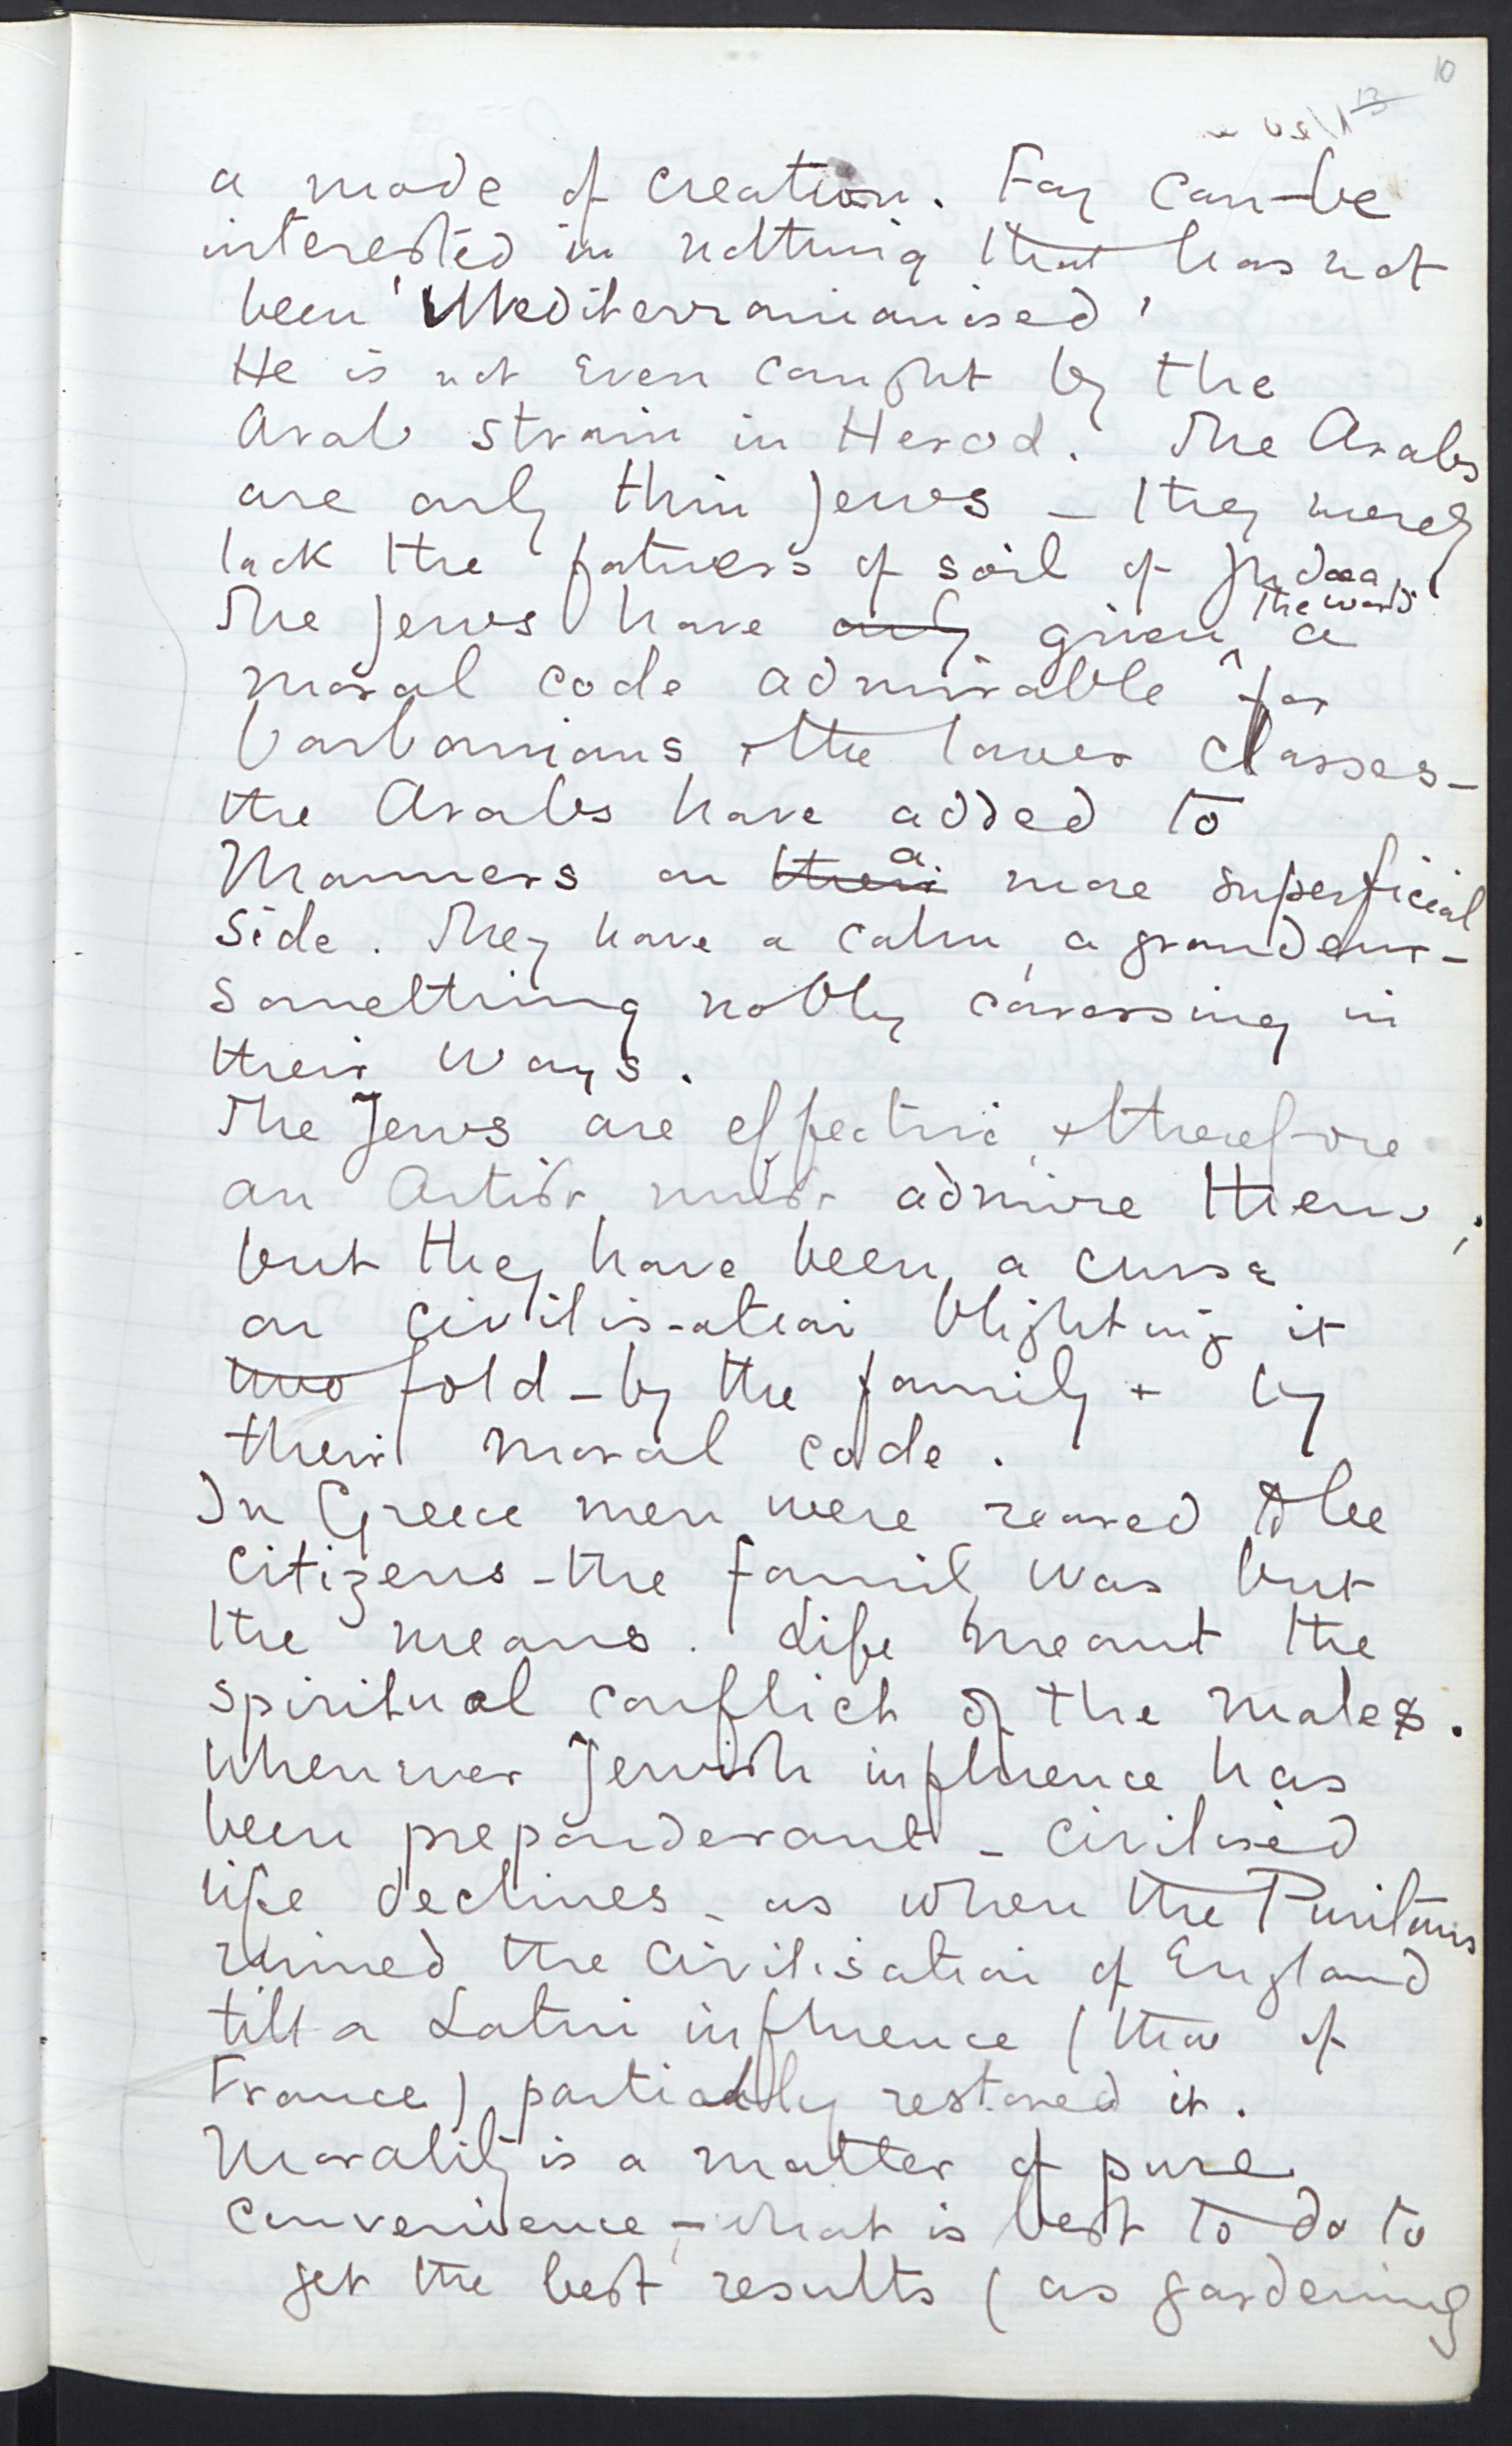 10
a mode of creation. Fay can be
interested in nothing that has not
been 'Mediterranianised'
He is not even caught by the
Arab strain in Herod. The Arabs
are only thin Jews – they merely
lack the fatness of soil of Judaea.
The Jews have only given the world a
moral code admirable for
barbarians & the lower classes –
the Arabs have added to
Manners on their a more superficial
side. They have a calm, a grandeur –
something nobly caressing in
their ways.
The Jews are effective, & therefore
an Artist must admire them;
but they have been a curse
on civilis-ation blighting it
two fold – by the family & by
their moral code.
In Greece men were reared to be
citizens – the family was but
the means. Life meant the
spiritual conflict of the males.
Whenever Jewish influence has
been preponderant – civilised
life declines – as when the Puritans
ruined the civilisation of England
till a Latin influence (that of
France) partially restored it.
Morality is a matter of pure
convenience – what is best to do to
get the best results (as gardening